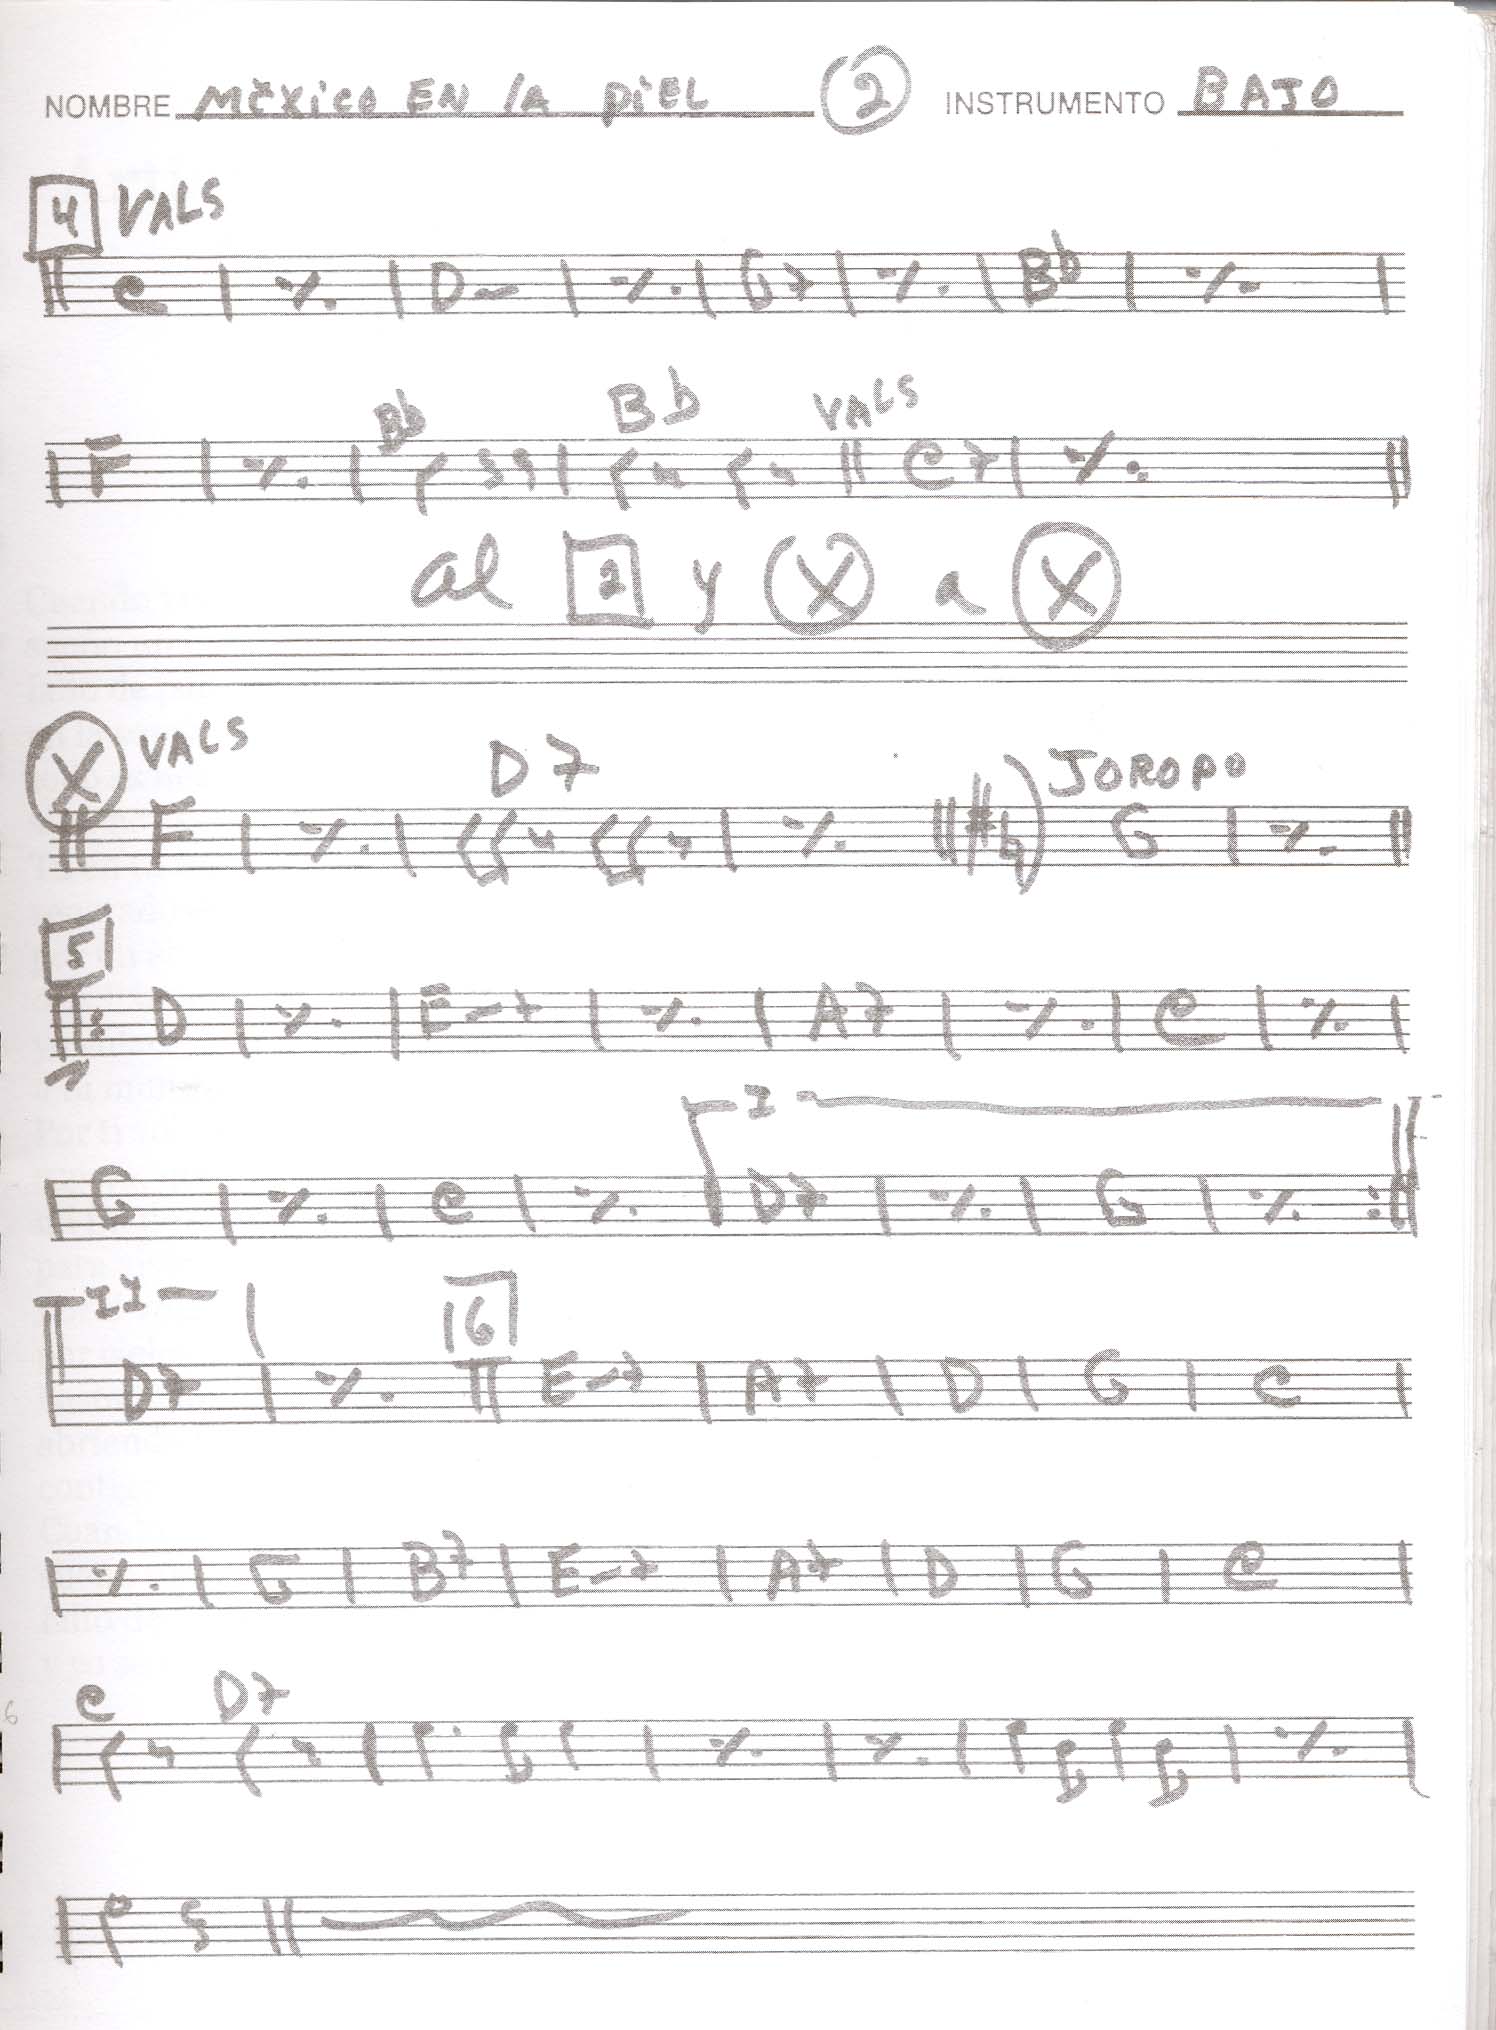 NOMBRE MĕXico EN lA piEL 2 INSTRUMENTO BAJO
4 VALS
C | ٪ | D- | ٪ | G7 | ٪ | Bb | ٪ |
Bb Bb VALS
| F | ٪ | | || C7 | ٪ ||
al 2 y X a X
X VALS D7 JOROPO
|| F | ٪ | | ٪ || #♮) G | ٪ ||
5
||: D | ٪ | E-7 | ٪ | A7 | ٪ | C | ٪ |
I
| G | ٪ | C | ٪ | D7 | ٪ | G | ٪ :||
II 6
| D7 | ٪ || E-7 | A7 | D | G | C |
| ٪ | G | B7 | E-7 | A7 | D | G | C |
C D7